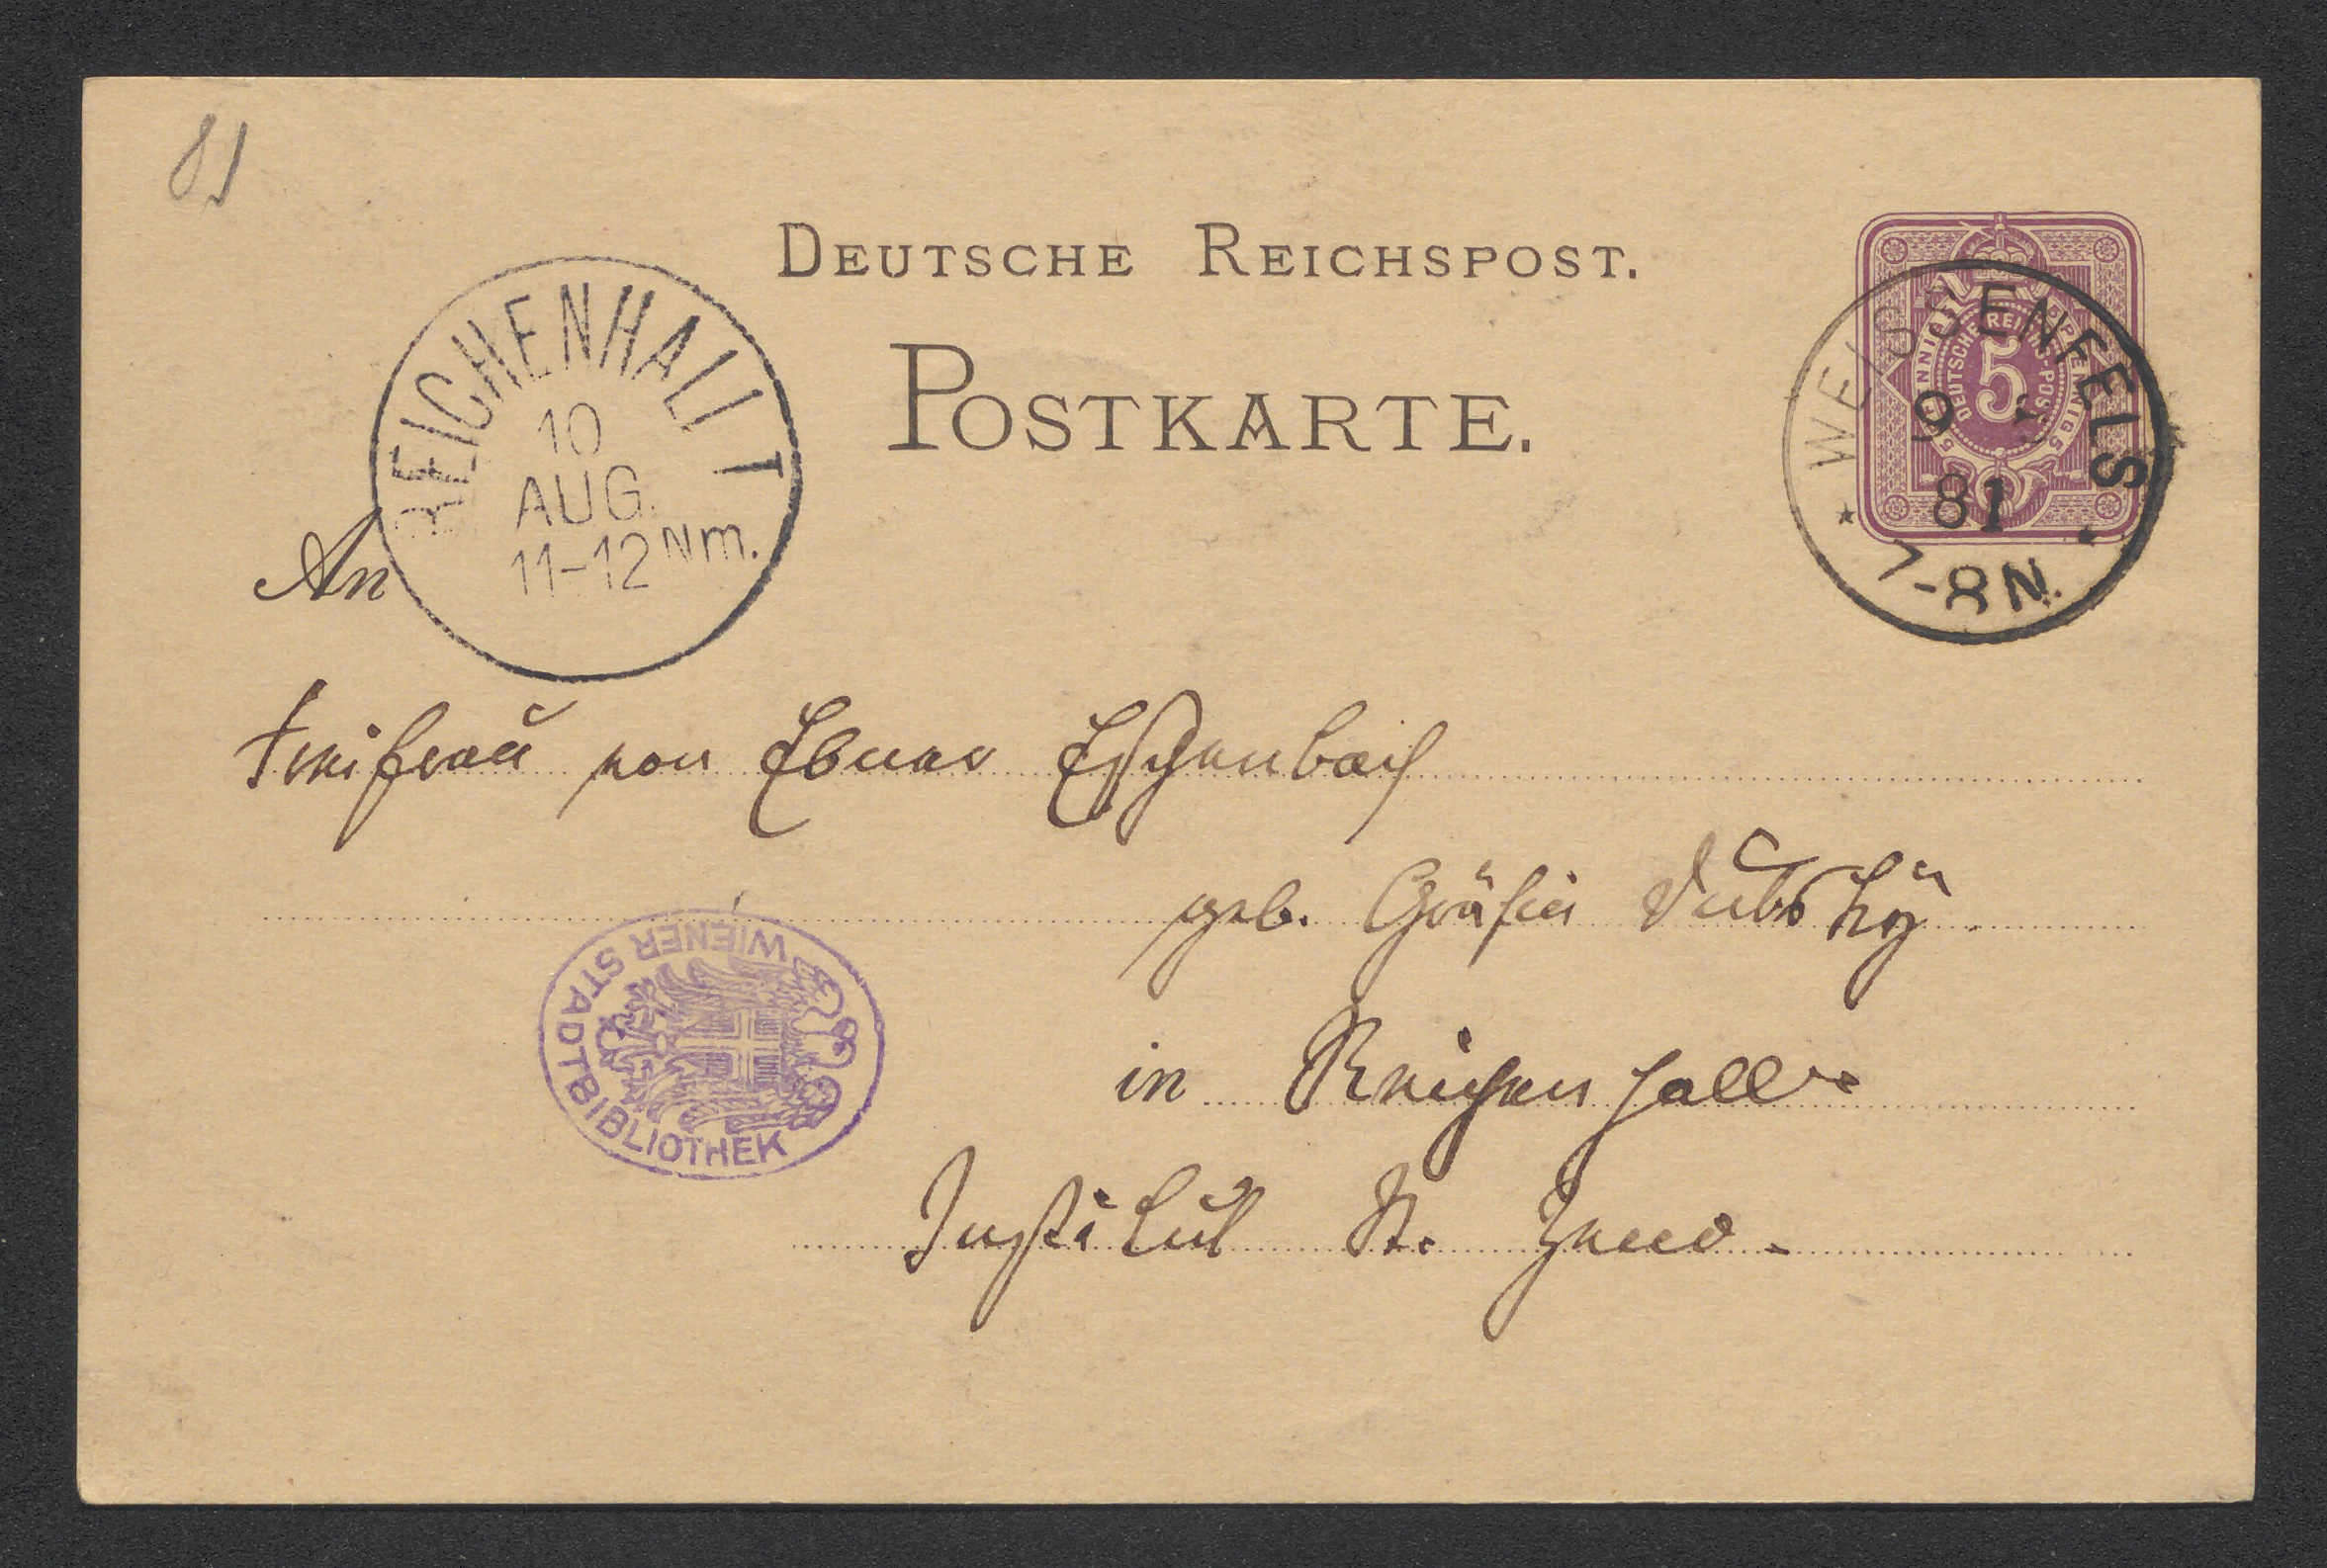 81
DEUTSCHE REICHSPOST.
POSTKARTE.
REICHENHALL
10
AUG.
11-12 Nm.
WEISSENFELS
9 8
81
7-8 N.
5 PFENNIG 5 PFENNIG
DEUTSCHE REICHS-POST
5
An
Freifrau von Ebner Eschenbach
geb. Gräfin Dubskÿ.
in Reichenhall
Institut St. Zeno.
WIENER STADTBIBLIOTHEK